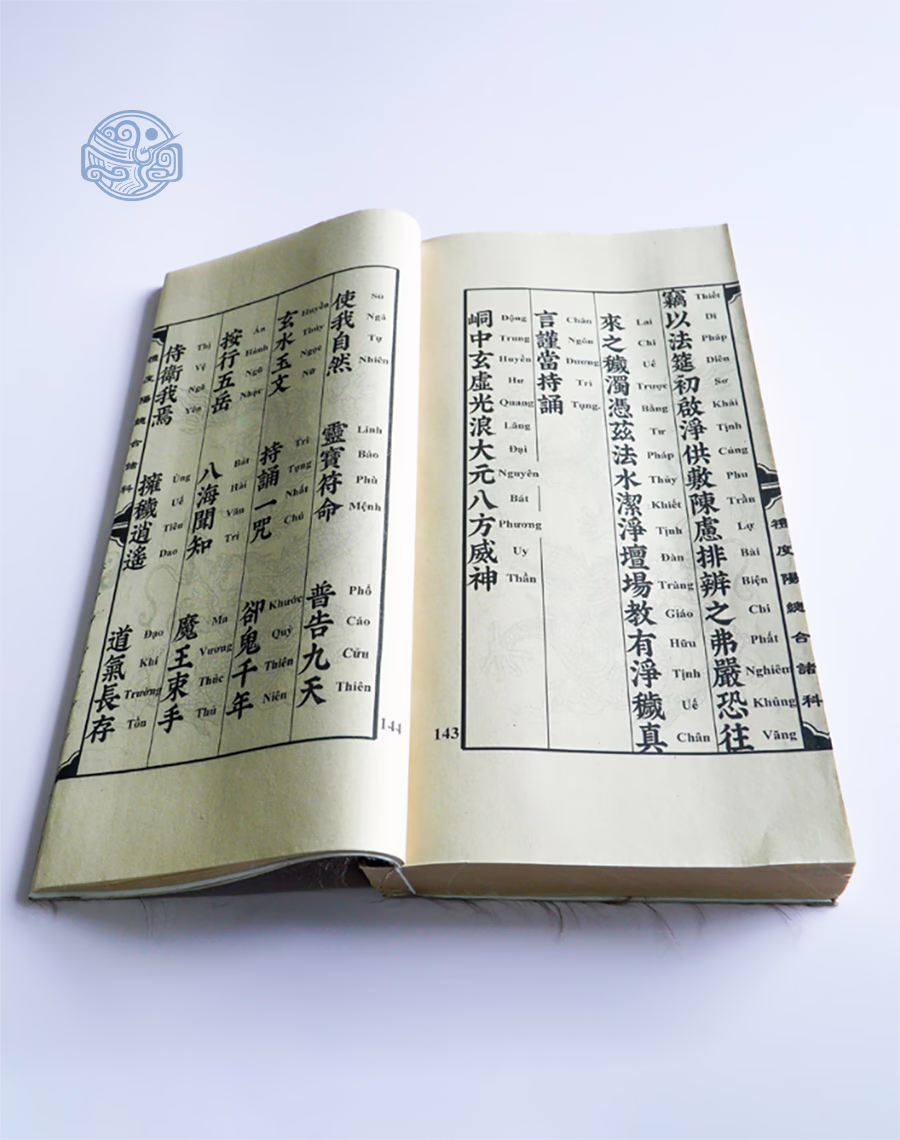 禮度陽總合諸科
Thiết Dĩ Pháp Diên Sơ Khải Tịnh Cúng Phu Trần Lự Bài Biện Chi Phất Nghiêm Khủng Vãng
竊以法筵初啟淨供敷陳慮排辨之弗嚴恐往
Lai Chi Uế Trược Bằng Tư Pháp Thủy Khiết Tịnh Đàn Tràng Giáo Hữu Tịnh Uế Chân
來之穢濁憑茲法水潔淨壇場教有淨穢真
Chân Ngôn Dương Trì Tụng.
言謹當持誦
Động Trung Huyền Hư Quang Lãng Đại Nguyên Bát Phương Uy Thần
峒中玄虛光浪大元八方威神
143
Sử Ngã Tự Nhiên Linh Bảo Phù Mệnh Phổ Cáo Cửu Thiên
使我自然 靈寶符命 普告九天
Huyền Thủy Ngọc Nữ Trì Tụng Nhất Chú Khước Quỷ Thiên Niên
玄水玉文 持誦一咒 卻鬼千年
Án Hành Ngũ Nhạc Bát Hải Văn Tri Ma Vương Thúc Thủ
按行五岳 八海聞知 魔王束手
Thị Vệ Ngã Yên Ủng Uế Tiêu Dao Đạo Khí Trường Tồn
侍衛我焉 擁穢逍遙 道氣長存
禮度陽總合諸科
144